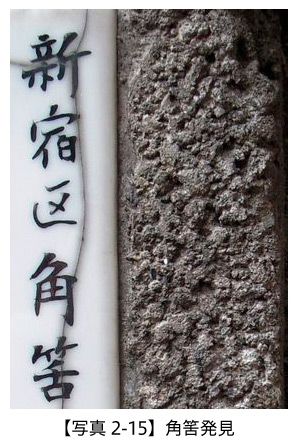 新宿区角筈
【写真 2-15】角筈発見